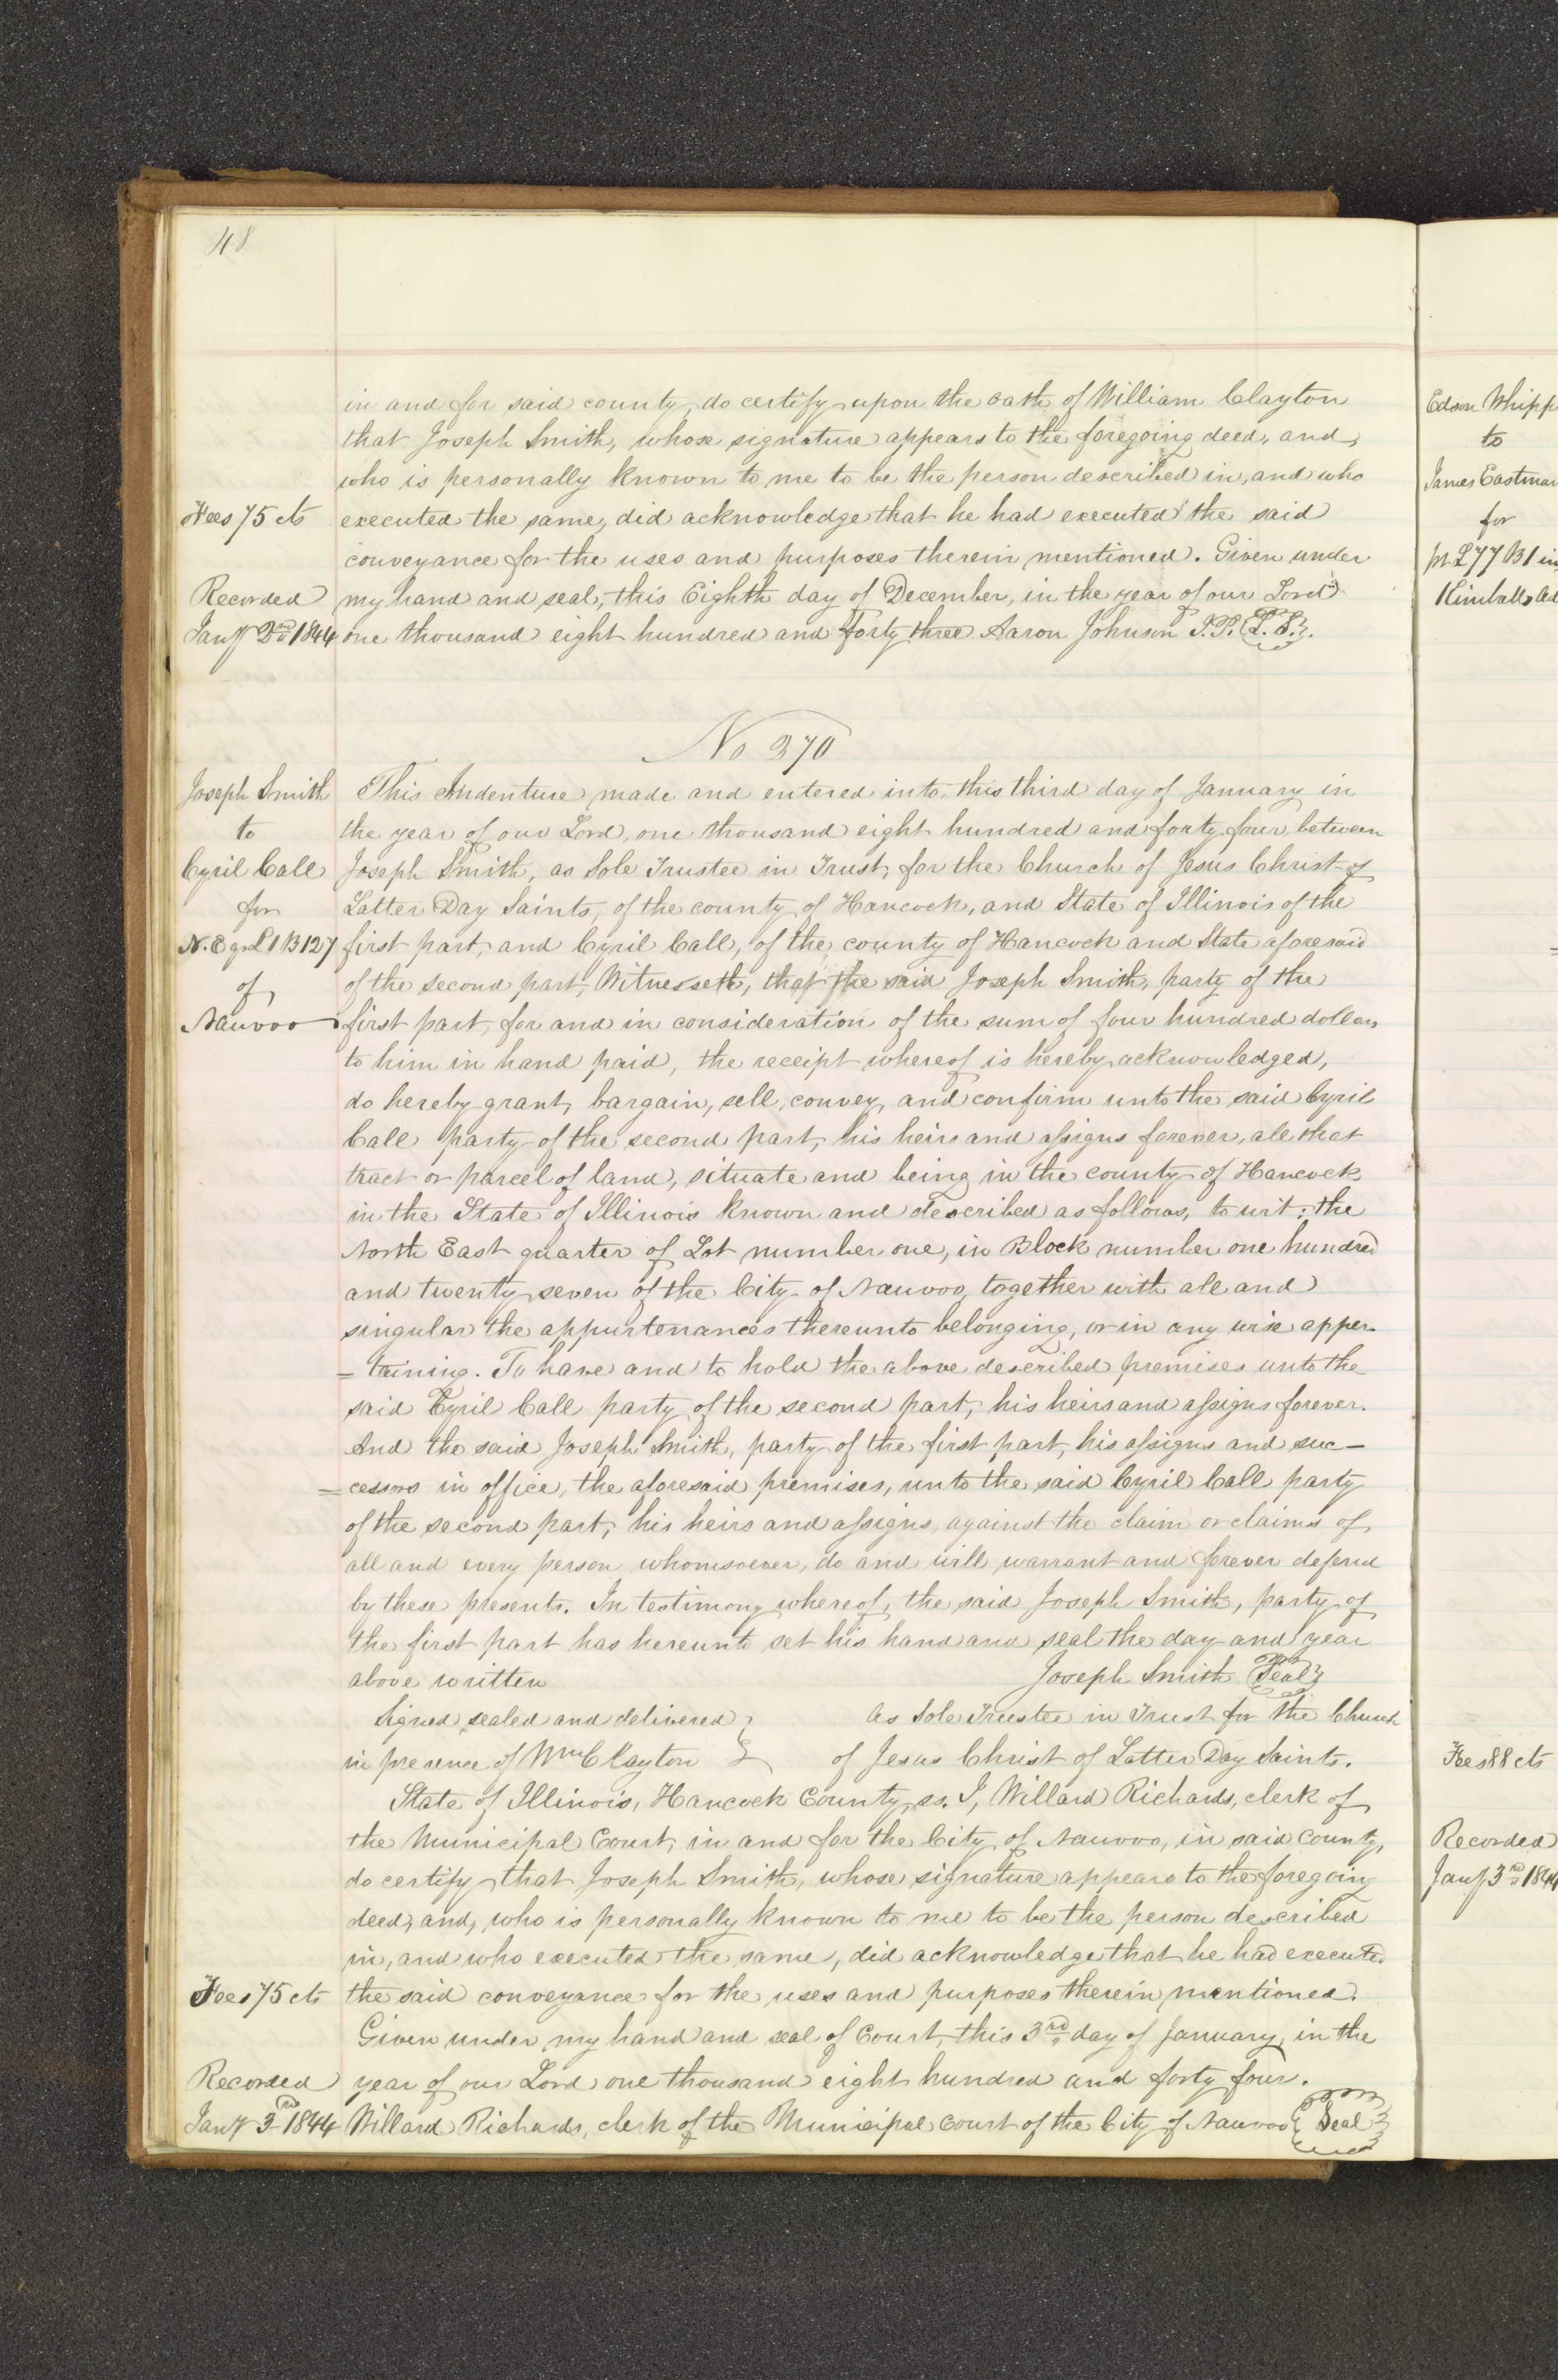 48
in and for said county, do certify upon the oath of William Clayton
that Joseph Smith, whose signature appears to the foregoing deed, and,
who is personally known to me to be the person described in, and who
Fees 75 cts
executed the same, did acknowledge that he had executed the said
conveyance for the uses and purposes therein mentioned. Given under
Recorded
my hand and seal, this Eighth day of December, in the year of our Lord
Jany 2nd 1844
one thousand eight hundred and forty three. Aaron Johnson J.P. {L.S.}.
No 270
Joseph Smith
This Indenture made and entered into this third day of January in
to
the year of our Lord, one thousand eight hundred and forty four, between
Cyril Call
Joseph Smith, as Sole Trustee in Trust, for the Church of Jesus Christ of
for
Latter Day Saints, of the county of Hancock, and State of Illinois of the
N. E qr L 1 B 127
first part, and Cyril Call, of the county of Hancock and State aforesaid
of
of the second part, Witnesseth, that the said Joseph Smith, party of the
Nauvoo
first part, for and in consideration of the sum of four hundred dollars
to him in hand paid, the receipt whereof is hereby acknowledged,
do hereby grant, bargain, sell, convey, and confirm unto the said Cyril
Call party of the second part, his heirs and assigns forever, all that
tract or parcel of land, situate and being in the county of Hancock
in the State of Illinois known and described as follows, to wit: the
North East quarter of Lot number one, in Block number one hundred
and twenty seven of the City of Nauvoo, together with all and
singular the appurtenances thereunto belonging, or in any wise apper-
=taining. To have and to hold the above described premises unto the
said Cyril Call party of the second part, his heirs and assigns forever.
And the said Joseph Smith, party of the first part, his assigns and suc-
=cessors in office, the aforesaid premises, unto the said Cyril Call party
of the second part, his heirs and assigns, against the claim or claims of
all and every person whomsoever, do and will warrant and forever defend
by these presents. In testimony whereof, the said Joseph Smith, party of
the first part has hereunto set his hand and seal the day and year
above written Joseph Smith {Seal}
Signed, sealed and delivered } as Sole Trustee in Trust for the Church
in presence of Wm Clayton } of Jesus Christ of Latter Day Saints.
State of Illinois, Hancock County, ss. I, Willard Richards, clerk of
the Municipal Court, in and for the City of Nauvoo, in said county,
do certify that Joseph Smith, whose signature appears to the foregoing
deed, and, who is personally known to me to be the person described
in, and who executed the same, did acknowledge that he had executed
Fees 75 cts
the said conveyance for the uses and purposes therein mentioned.
Given under my hand and seal of Court, this 3rd day of January, in the
Recorded
year of our Lord one thousand eight hundred and forty four.
Jany 3rd 1844
Willard Richards, clerk of the Municipal Court of the City of Nauvoo {Seal}
Edson Whipp
to
James Eastman
for
pt L 77 B 1 in
Kimballs Ad
Fees 88 cts
Recorded
Jany 3rd 1844